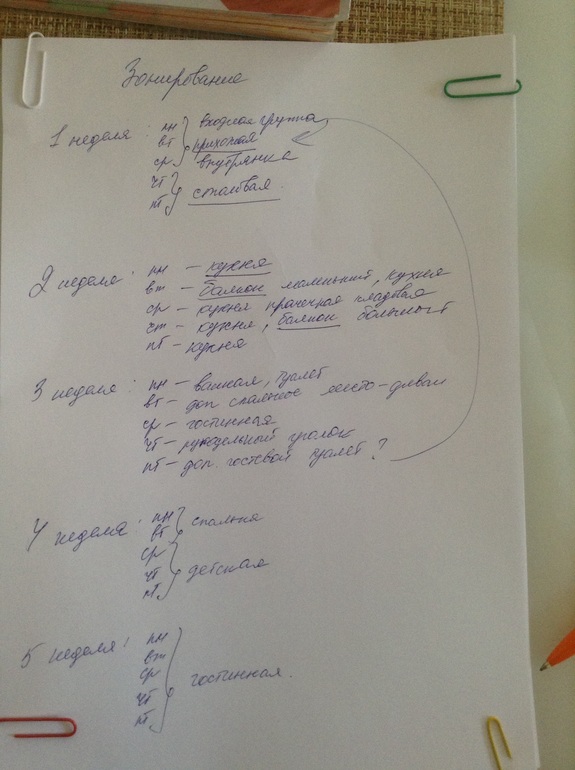 Зонирование
1 неделя: пн входная группа
вт прихожая
ср внутрянка
чт
пт столовая.
2 неделя: пн – кухня
вт – балкон маленький, кухня
ср – кухня прачечная кладовая
чт – кухня, балкон большой
пт – кухня
3 неделя: пн – ванная, туалет
вт – доп спальное место-диван
ср – гостинная
чт – рукодельный уголок
пт – доп. гостевой туалет?
4 неделя: пн
вт спальня
ср
чт детская
пт
5 неделя: пн
вт
ср гостинная.
чт
пт